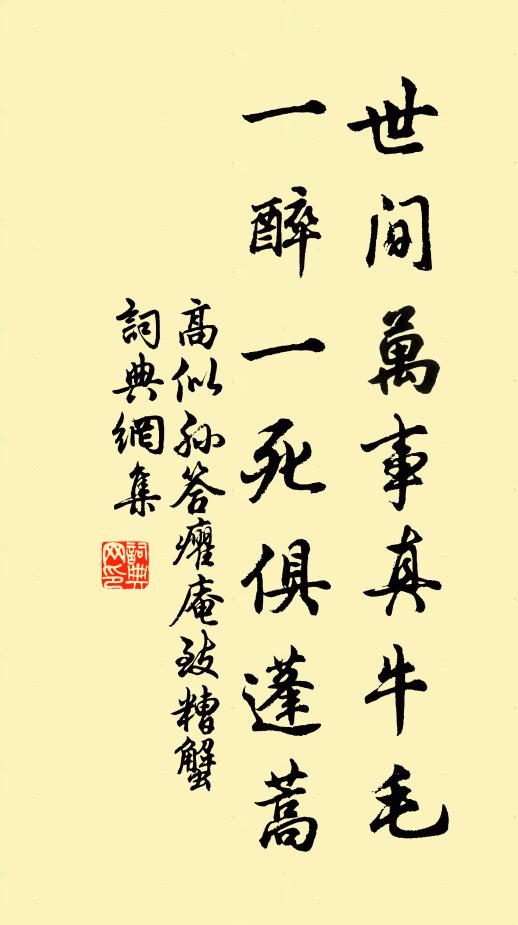 世間萬事真牛毛
一醉一死俱蓬蒿
高似孫答癯庵致糟蟹
詞典網集
詞典網印